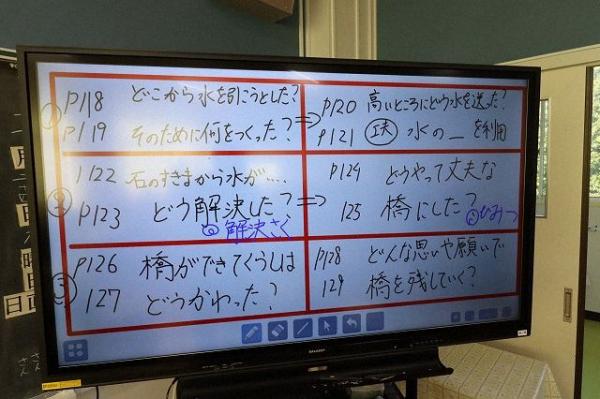 ① P118 どこから水を引こうとした?
P119 そのために何をつくった? ⇒
P120 高いところにどう水を送った?
P121 工夫 水の_を利用
② P122 石のすきまから水が....
P123 どう解決した? ⇒
◎解決さく
P124 どうやって丈夫な
125 橋にした?
◎ひみつ
③ P126 橋ができてくらしは
127 どうかわった?
P128 どんな思いや願いで
129 橋を残していく?
SHARP